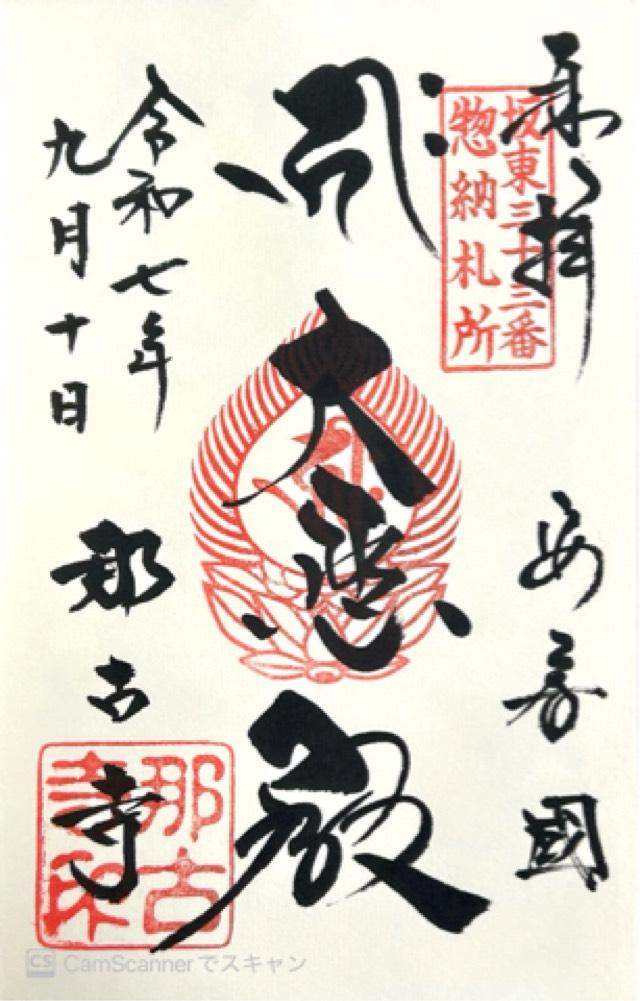 奉拝
安房國
坂東三十三番
惣納札所
大悲殿
令和七年
九月十日
那古寺
那古
寺印
CS CamScannerでスキャン